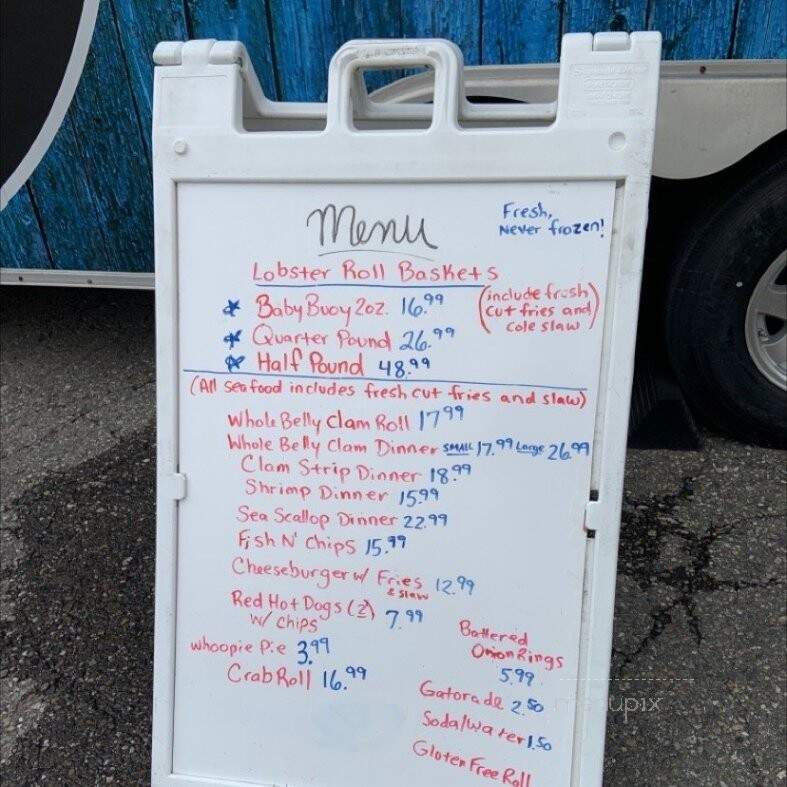 Menu
Fresh,
Never frozen!
Lobster Roll Baskets
Baby Buoy 2oz. 16.99
(include fresh
cut fries and
cole slaw)
Quarter Pound 26.99
Half Pound 48.99
(All seafood includes fresh cut fries and slaw)
Whole Belly Clam Roll 17.99
Whole Belly Clam Dinner SMALL 17.99 Large 26.99
Clam Strip Dinner 18.99
Shrimp Dinner 15.99
Sea Scallop Dinner 22.99
Fish N' Chips 15.99
Cheeseburger w/ Fries 12.99
& slaw
Red Hot Dogs (2) 7.99
w/ chips
whoopie Pie 3.99
Crab Roll 16.99
Battered
Onion Rings
5.99
Gatorade 2.50
Soda/water 1.50
Gluten Free Roll
menupix